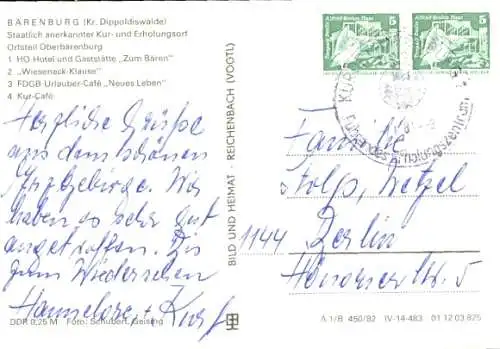 BÄRENBURG (Kr. Dippoldiswalde)
Staatlich anerkannter Kur- und Erholungsort
Ortsteil Oberbärenburg
1 HO Hotel und Gaststätte „Zum Bären“
2 „Wieseneck-Klause“
3 FDGB-Urlauber-Café „Neues Leben“
4 Kur-Café
Herzliche Grüße
aus dem schönen
Erzgebirge. Wir
haben es sehr gut
angetroffen. Bis
zum Wiedersehen
Hannelore + Kurt
DDR 0,25 M Foto: Schubert, Geising
BILD UND HEIMAT · REICHENBACH (VOGTL)
5
5
KUR
Erholungszentrum
Familie
Wetzel
1144 Berlin
5
A 1/B 450/82 IV-14-483 01 12 03 825